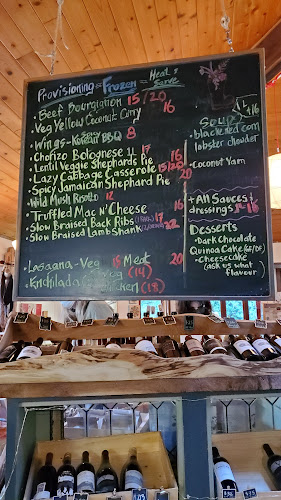 Provisioning - Frozen = Heat & Serve
- Beef Bourgiation 15/20
- Veg Yellow Coconut Curry 16
- Wings - Korean BBQ 8
- Chorizo Bolognese 1L 17
- Lentil Veggie Shephards Pie 15/
- Lazy Cabbage Casserole 16
- Spicy Jamaican Shephard Pie 20
- Wild Mush Risotto 12
- Truffled Mac n' Cheese 16
- Slow Braised Back Ribs 17
- Slow Braised Lamb Shank 22
- Lasagna - Veg 15 Meat 20
- Enchilada Veg (14)
Chicken (18)
Soup
16
- blackened corn
lobster chowder
- Coconut Yam
+ All Sauces &
dressings 14-16
Desserts
- Dark Chocolate
Quinoa Cake
- Cheesecake
(ask us what
flavour)